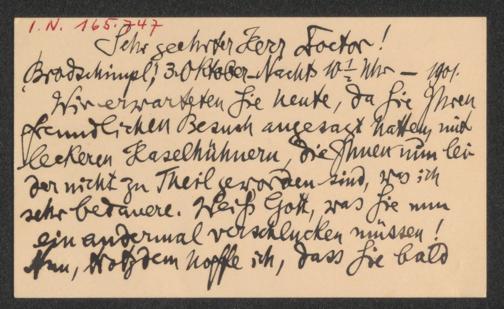 I.N. 165.747
Sehr geehrter Herr Doctor!
3. Oktober Nachts 10 1/2 Uhr – 1901.
Wir erwarteten Sie heute, da Sie Ihren
freundlichen Besuch angesagt hatten, mit
leckeren Haselhühnern, die Ihnen nun lei-
der nicht zu Theil geworden sind, was ich
sehr bedauere. Weiß Gott, was Sie nun
ein andermal verschlucken müssen!
Nun, trotzdem hoffe ich, dass Sie bald